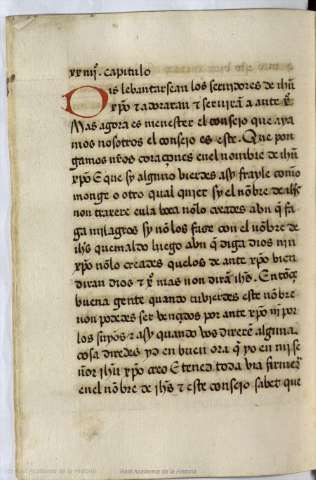 xxiiijº. capitulo
Dis lebantarsean los seruidores de ihũ
xp̃o τ adoraran τ seruirã a ante xº.
Mas agora es menester el consejo que aya
mos nosotros el consejo es este. Que pon
gamos nr̃os coraçones en el nombre de ihũ
xp̃o E que sy alguno bierdes asy frayle como
monge o otro qual quier sy el nõbre de ihs̃
non traxere en la boca nõlo creades abn q̃ fa
ga milagros sy nõ los fase con el nõbre de
ihs̃ quemaldo luego abn q̃ diga dios nin
xp̃o nõlo creades quelos de ante xp̃o bien
diran dios τ xº mas non dirã ihs̃. Entõçe
buena gente quando tubierdes este nõbre
non podedes ser bençidos por ante xp̃o nj por
los suyos τ asy quando vos dixere alguna
cosa diredes yd en buen ora q̃ yo en mj se
ñor ihũ xp̃o creo E tened toda via firmes
en el nõbre de ihs̃ τ este consejo sabet que
Real Academia de la Historia
Real Academia de la Historia